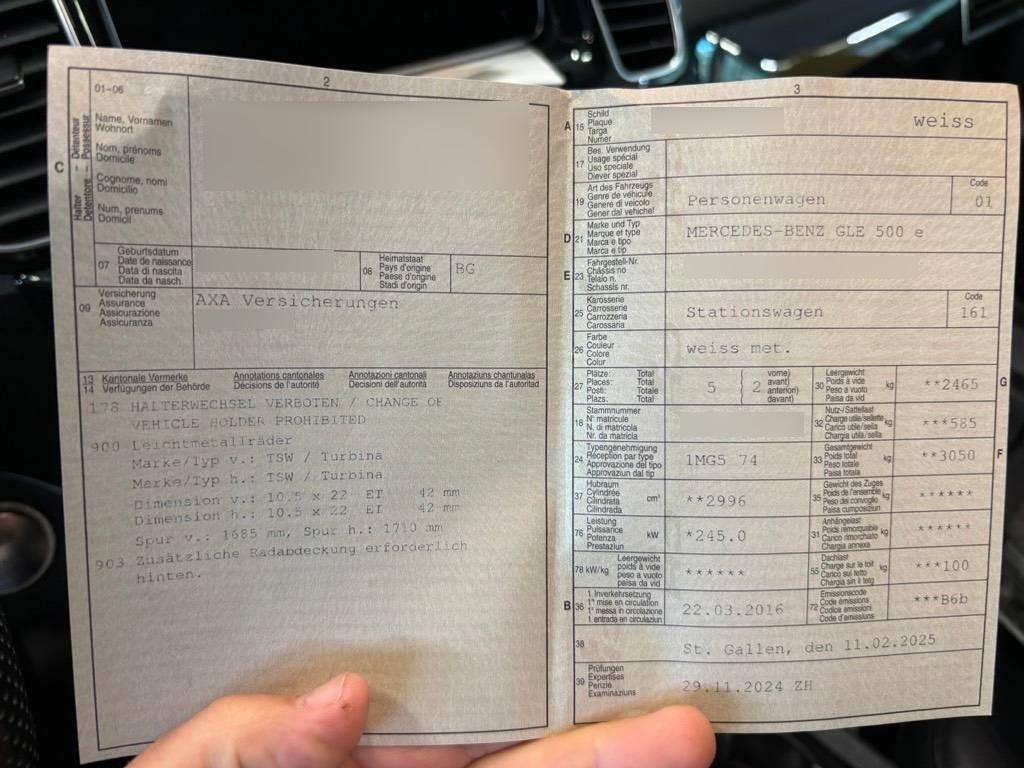 2
01-06
C
Halter - Détenteur
Detentore - Possessur
Name, Vornamen
Wohnort
Nom, prénoms
Domicile
Cognome, nomi
Domicilio
Num, prenums
Domicil
07
Geburtsdatum
Date de naissance
Data di nascita
Data da nasch.
08
Heimatstaat
Pays d'origine
Paese d'origine
Stadi d'origin
BG
09
Versicherung
Assurance
Assicurazione
Assicuranza
AXA Versicherungen
13 Kantonale Vermerke
14 Verfügungen der Behörde
Annotations cantonales
Décisions de l'autorité
Annotazioni cantonali
Decisioni dell'autorità
Annotaziuns chantunalas
Disposiziuns da l'autoritad
178 HALTERWECHSEL VERBOTEN / CHANGE OF
VEHICLE HOLDER PROHIBITED
900 Leichtmetallräder
Marke/Typ v.: TSW / Turbina
Marke/Typ h.: TSW / Turbina
Dimension v.: 10.5 x 22 ET 42 mm
Dimension h.: 10.5 x 22 ET 42 mm
Spur v.: 1685 mm, Spur h.: 1710 mm
903 Zusätzliche Radabdeckung erforderlich
hinten.
3
A 15
Schild
Plaque
Targa
Numer
weiss
17
Bes. Verwendung
Usage spécial
Uso speciale
Diever spezial
19
Art des Fahrzeugs
Genre de véhicule
Genere di veicolo
Gener dal vehichel
Personenwagen
Code
01
D 21
Marke und Typ
Marque et type
Marca e tipo
Marca e tip
MERCEDES-BENZ GLE 500 e
E 23
Fahrgestell-Nr.
Châssis no
Telaio n.
Schassis nr.
25
Karosserie
Carrosserie
Carrozzeria
Carossaria
Stationswagen
Code
161
26
Farbe
Couleur
Colore
Colur
weiss met.
27
Plätze: Total
Places: Total
Posti: Totale
Plazs: Total
5
2
vorne)
avant)
anteriori)
davant)
30
Leergewicht
Poids à vide
Peso a vuoto
Paisa da vid
kg
**2465
G
18
Stammnummer
N° matricule
N. di matricola
Nr. da matricla
32
Nutz-/Sattellast
Charge utile/sellette
Carico utile/sella
Chargia utila/sella
kg
***585
24
Typengenehmigung
Réception par type
Approvazione del tipo
Approvaziun dal tip
1MG5 74
33
Gesamtgewicht
Poids total
Peso totale
Paisa totala
kg
**3050
F
37
Hubraum
Cylindrée
Cilindrata
Cilindrada
cm³
**2996
35
Gewicht des Zuges
Poids de l'ensemble
Peso del convoglio
Paisa cumposiziun
kg
******
76
Leistung
Puissance
Potenza
Prestaziun
kW
*245.0
31
Anhängelast
Poids remorquable
Carico rimorchiato
Chargia annexa
kg
******
78 kW/kg
Leergewicht
poids à vide
peso a vuoto
paisa da vid
******
55
Dachlast
Charge sur le toit
Carico sul tetto
Chargia sin il tetg
kg
***100
B 36
1. Inverkehrsetzung
1re mise en circulation
1a messa in circolazione
1. entrada en circulaziun
22.03.2016
72
Emissionscode
Code émissions
Codice emissioni
Code d'emissiuns
***B6b
38
St. Gallen, den 11.02.2025
39
Prüfungen
Expertises
Perizie
Examinaziuns
29.11.2024 ZH